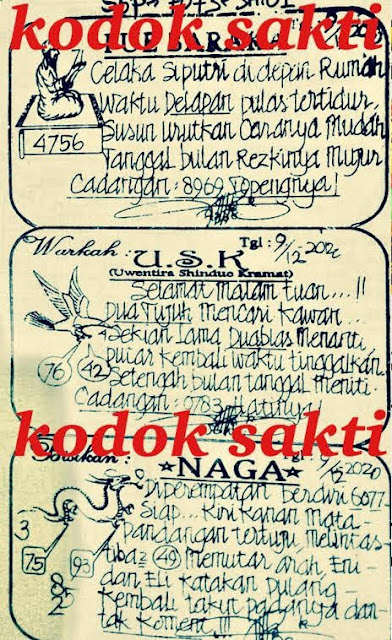 kodok sakti
Celaka Siputri di depan Rumah
Waktu Delapan pulas tertidur.
Susun Urutkan Caranya Mudah
Tanggal bulan Rezkinya Mujur
4756
Cadangan : 8969 Topengnya!
Warkah : U.S.K Tgl : 9/12-202
(Uwentira Shinduo Kramat)
Selamat malam tuan...!!
Dua Tujuh mencari kawan...
Sekian lama Duablas Menanti
putar kembali waktu tinggalkan
76 42
Setengah bulan tanggal meniti.
Cadangan : 0783 Hatinya!
kodok sakti
NAGA 9/12 2020
Diperempatan berdiri 6077
Siap... Kiri Kanan mata-
pandangan tertuju melintas
3
75 93
tiba2 49 Memutar arah Eni-
dan Eli katakan pulang-
8
2
kembali takut padanya dan
tak koment !!!